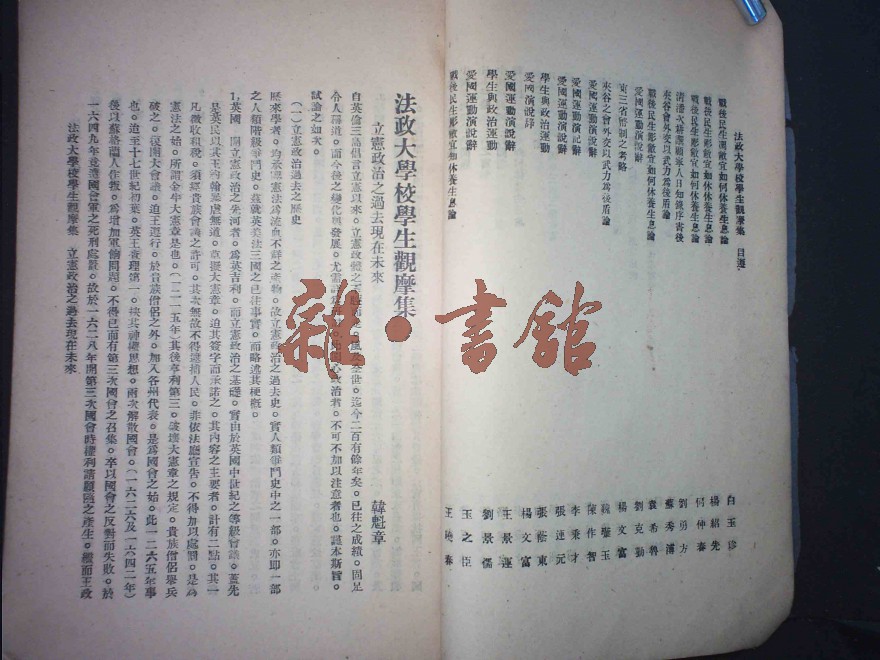 法政大學校學生觀摩集 目選
戰後民生凋敝宜如何休養生息論 白玉珍
戰後民生凋敝宜如何休養生息論 楊紹先
戰後民生凋敝宜如何休養生息論 何仲春
劉勇方
夾谷之會外交以武力為後盾論 蘇秀濤
戰後民生凋敝宜如何休養生息論 袁希魯
愛國運動演說辭 劉克勤
東三省幣制之考略 楊文富
夾谷之會外交以武力為後盾論 魏璽玉
愛國運動演說辭 陳作智
愛國運動演說辭 李秉才
愛國運動演說辭 張連元
學生與政治運動 張裕東
愛國演說詞 楊文富
愛國運動演說辭 王景運
學生與政治運動 劉景儒
愛國運動演說辭 王之臣
戰後民生凋敝宜如何休養生息論 王曉春
法政大學校學生觀摩集
立憲政治之過去現在未來 韓魁章
自英倫三島倡言立憲以來。立憲政體之 世。迄今二百有餘年矣。已往之成績。固足
令人謳道。而今後之變化與發展。尤 政治者。不可不加以注意者也。謹本斯旨。
試論之如次。
(一)立憲政治過去之歷史
歷來學者。均認憲法為流血不鮮之產物。故立憲政治之過去史。實人類爭鬥史中之一部。亦即一部
之人類階級爭鬥史。茲就英美法三國之已往事實。而略述其梗概。
1.英國 開立憲政治之先河者。為英吉利。而立憲政治之基礎。實由於英國中世紀之等級會議。蓋先
是英民以其王約翰暴虐無道。草擬大憲章。迫其簽字而承諾之。其內容之主要者。計有二點。其一
凡徵收租稅。須經貴族會議之許可。其次無故不得逮捕人民。非依法廳宣告。不得加以處罰。是為
憲法之始。所謂金牛大憲章是也。(一二一五年)其後亨利第三。破壞大憲章之規定。貴族僧侶舉兵
破之。復開大會議。迫王遵行。於貴族僧侶之外。加入各州代表。是為國會之始。此一二六五年事
也。迨至十七世紀初葉。英王查理第一。挾其神權思想。兩次解散國會。(一六二六及一六四二年)
後以蘇格蘭人作叛。為增加軍餉問題。不得已而有第三次國會之召集。卒以國會之反對而失敗。於
一六四九年竟遭國會軍之死刑處置。故於一六二八年開第三次國會時權利請願隨之產生。繼而王政
法政大學校學生觀摩集 立憲政治之過去現在未來
雜·書館